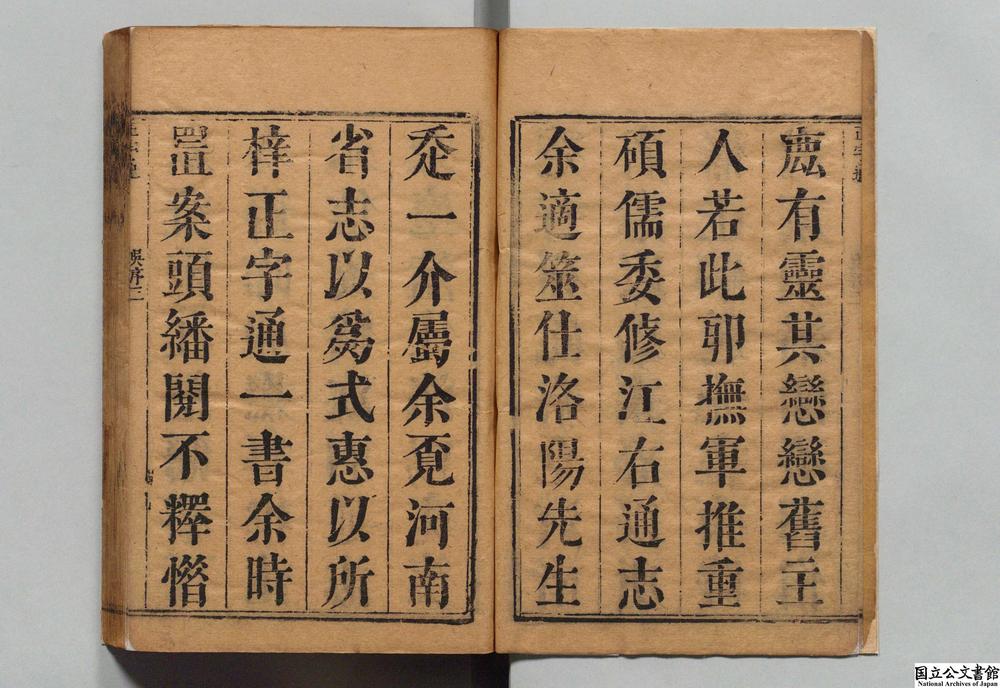 廌有靈其戀戀舊主
人若此耶撫軍推重
碩儒委修江右通志
余適筮仕洛陽先生
走一介屬余覔河南
省志以爲式惠以所
梓正字通一書余時
置案頭繙閱不釋憯
吳序三
国立公文書館
National Archives of Japan